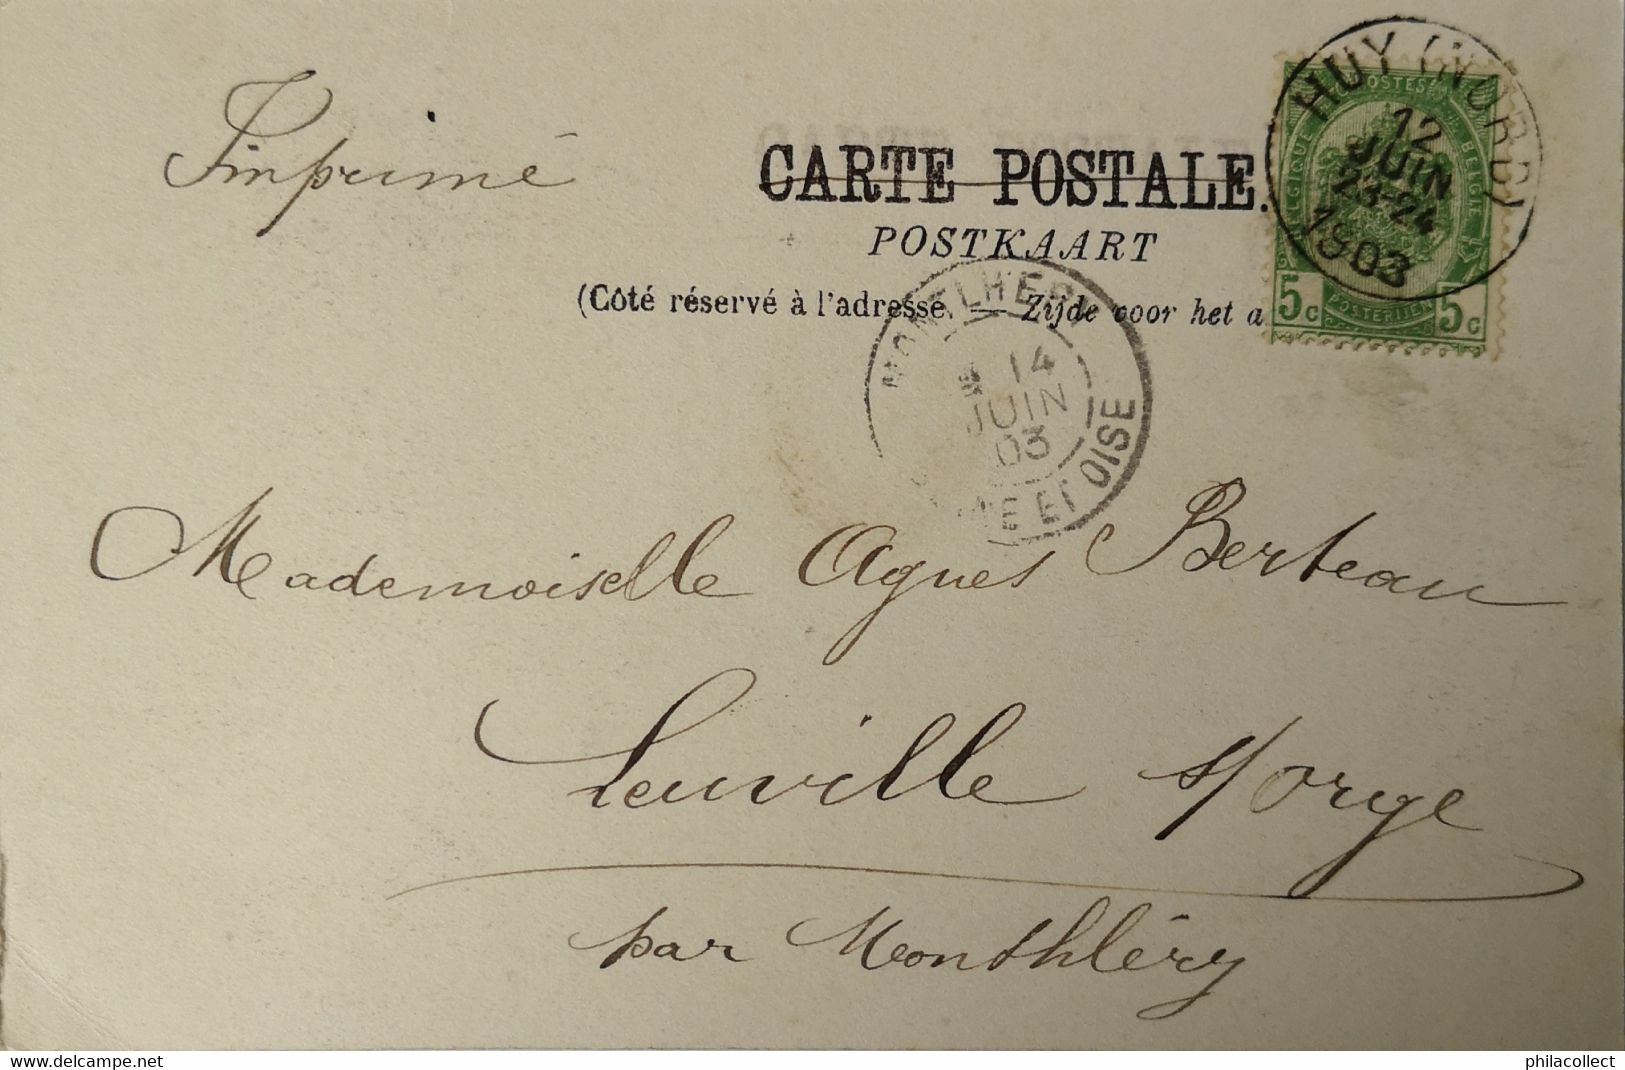 Imprimé
CARTE POSTALE.
POSTKAART
(Côté réservé à l'adresse. — Zijde voor het a
POSTES
BELGIQUE BELGIE
5c POSTERIJEN 5c
HUY (NORD)
12
JUIN
23-24
1903
MONTLHERY
14
JUIN
03
ET OISE
Mademoiselle Agnes Berteau
Leuville s/ orge
par Monthléry
www.delcampe.net
philacollect